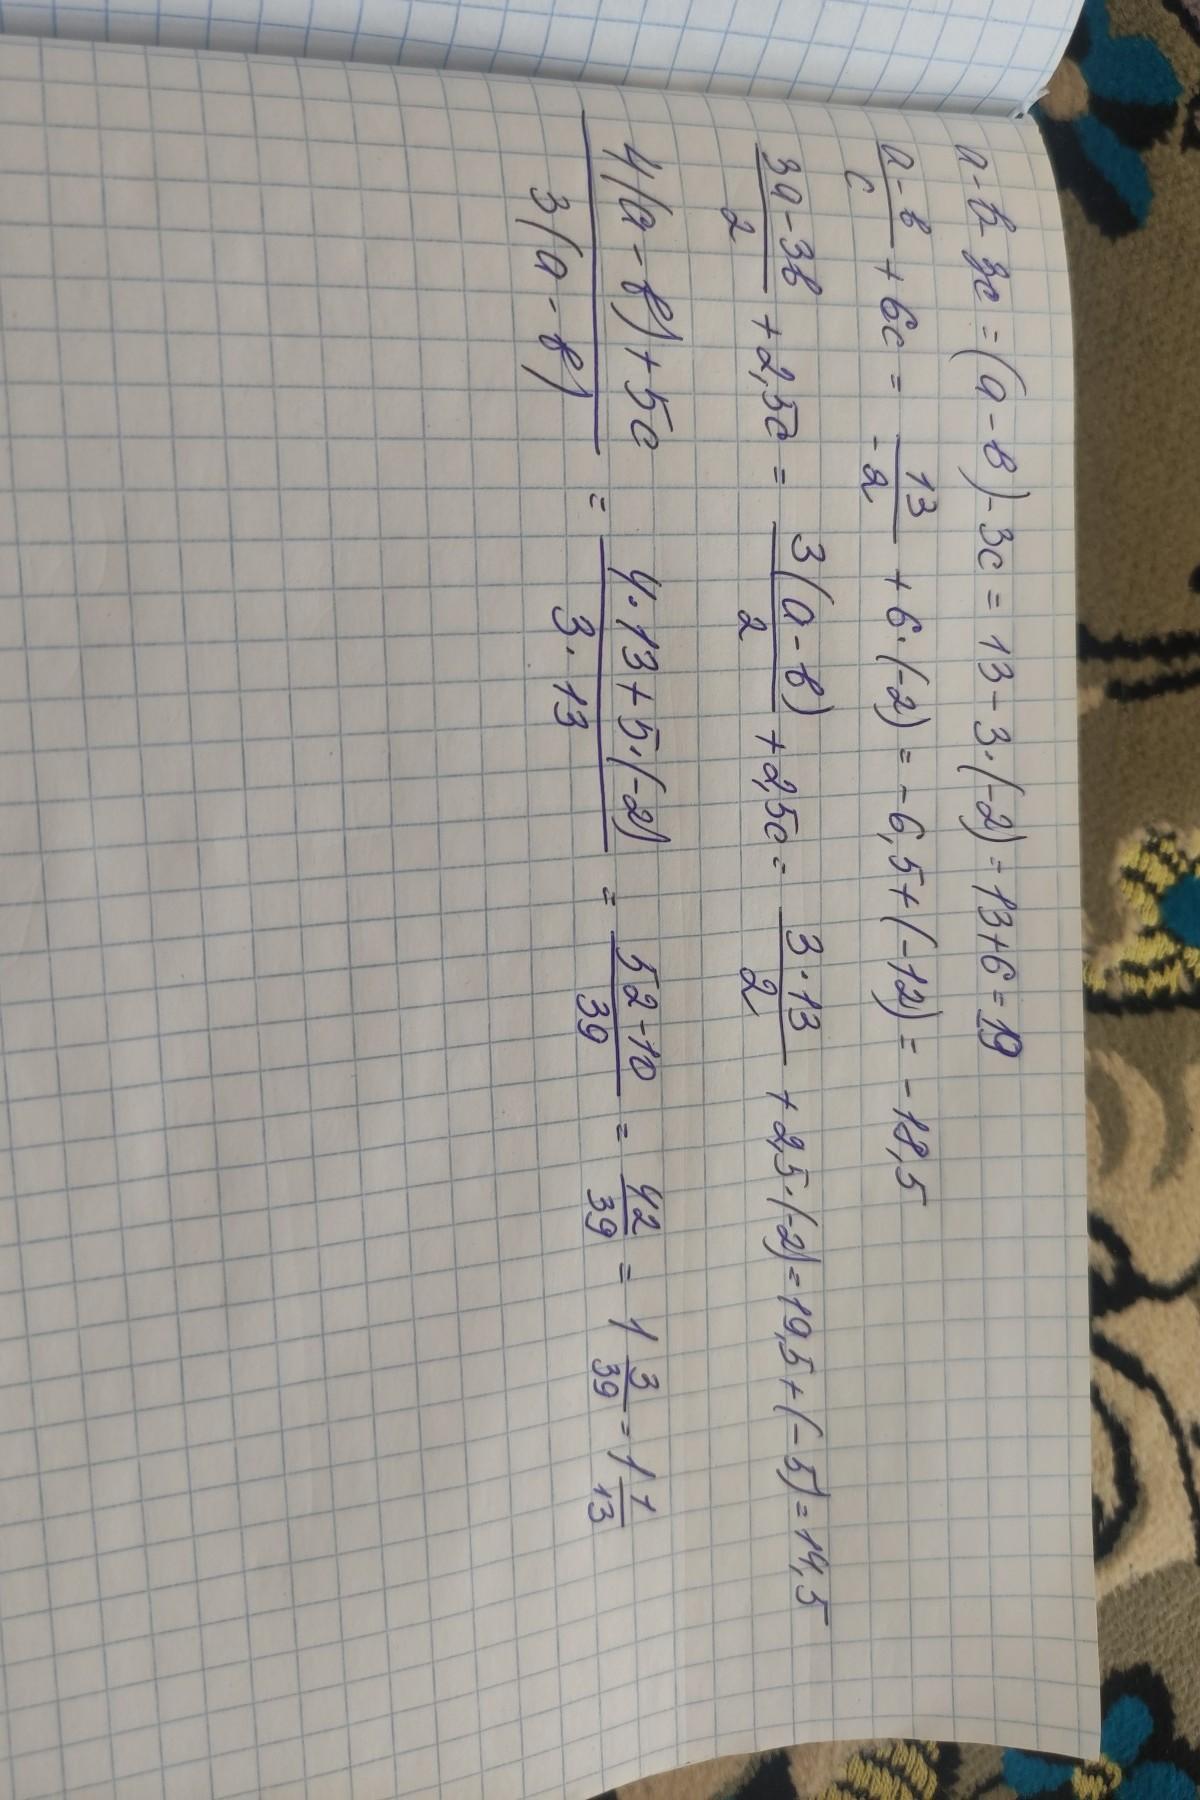 a-в-3c=(a-в)-3c=13-3·(-2)=13+6=19
(a-в)/c+6c=13/-2+6·(-2)=-6,5+(-12)=-18,5
(3a-3в)/2+2,5c=3(a-в)/2+2,5c=3·13/2+2,5·(-2)=19,5+(-5)=14,5
(4(a-в)+5c)/(3(a-в))=(4·13+5·(-2))/(3·13)=(52-10)/39=42/39=1 3/39=1 1/13